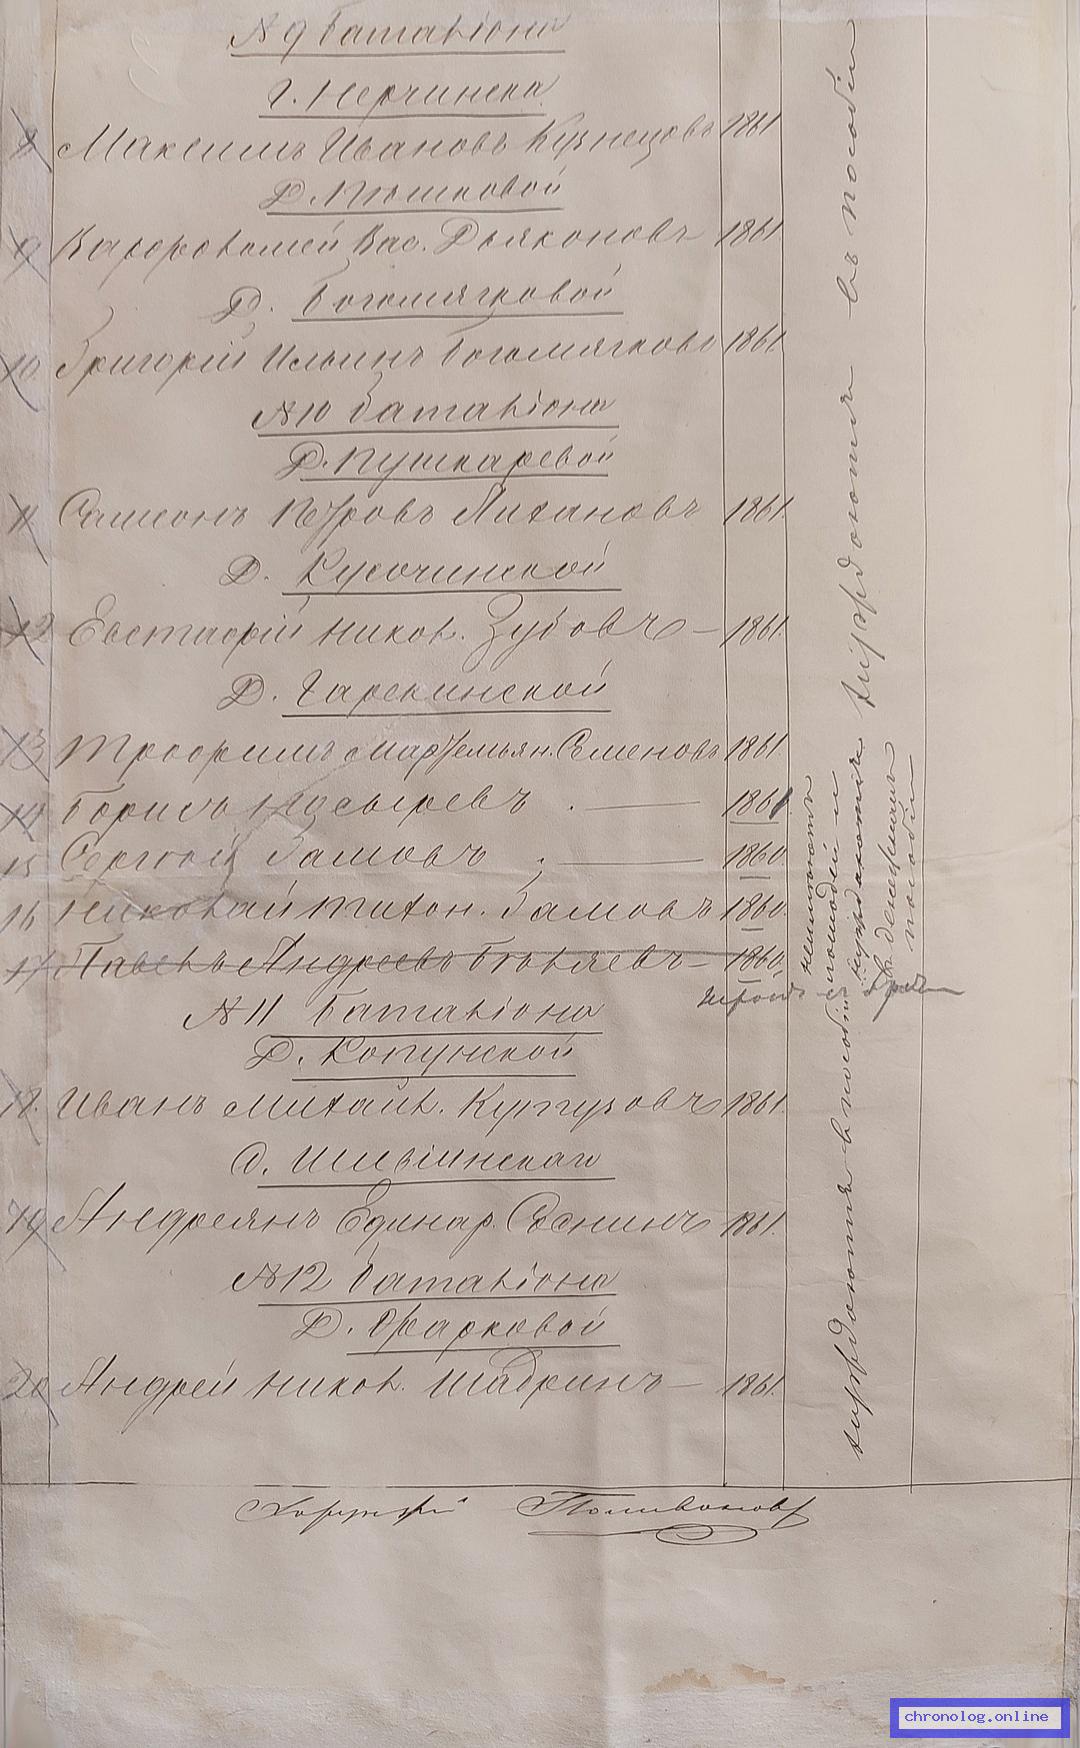 № 9 баталіона
г. Нерчинска
8 Максимъ Ивановъ Кузнецовъ 1861
Д. Пѣшковой
9 Варфоломей Вас. Дьяконовъ 1861
Д. Богомягковой
10 Григорій Ильинъ Богомягковъ 1861.
№ 10 баталіона
Д. Пушкаревой
11 Самсонъ Петровъ Лихановъ 1861.
Д. Кусочинской
12 Евстафій Никол. Зубовъ — 1861.
Д. Чарекинской
13 Трофимъ Мардемьян. Семеновъ 1861.
14 Борисъ Косыревъ . — 1861.
15 Сергѣй Замовъ . — 1860.
16 Николай Тихон. Замовъ 1860.
17 Павелъ Андреевъ Бѣляевъ — 1860.
№ 11 баталіона
Д. Копунской
18. Иванъ Михайл. Кургузовъ 1861.
с. Шивіинскаго
19 Андреянъ Единар. Соснинъ 1861.
№ 12 баталіона
Д. Фарковой
20 Андрей Никол. Шадринъ — 1861.
нуждаются въ пособіи
нуждаются
въ денежномъ
пособіи
нуждаются въ пособіи
Хорунжій Поливановъ
chronolog.online